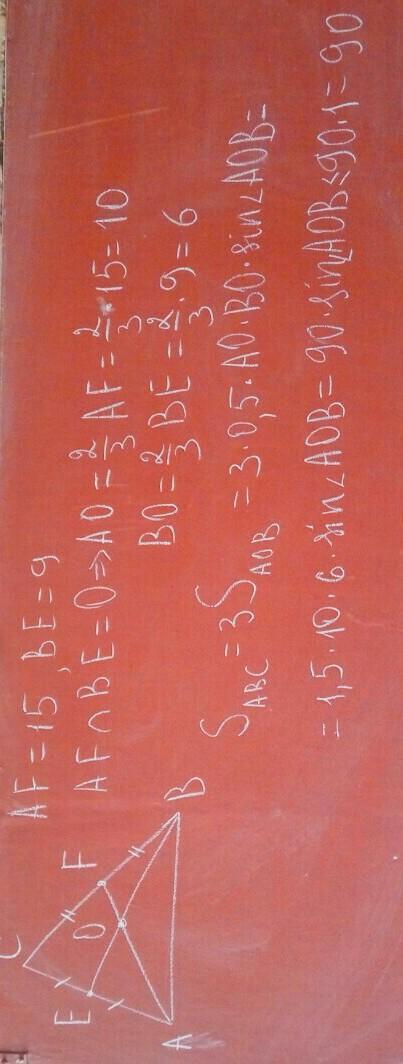 AF=15, BE=9
AF∩BE=O⇒AO=2/3 AF=2/3·15=10
BO=2/3 BE=2/3·9=6
S_ABC=3S_AOB=3·0,5·AO·BO·sin∠AOB=
=1,5·10·6·sin∠AOB=90·sin∠AOB≤90·1=90
C
E
O
F
A
B